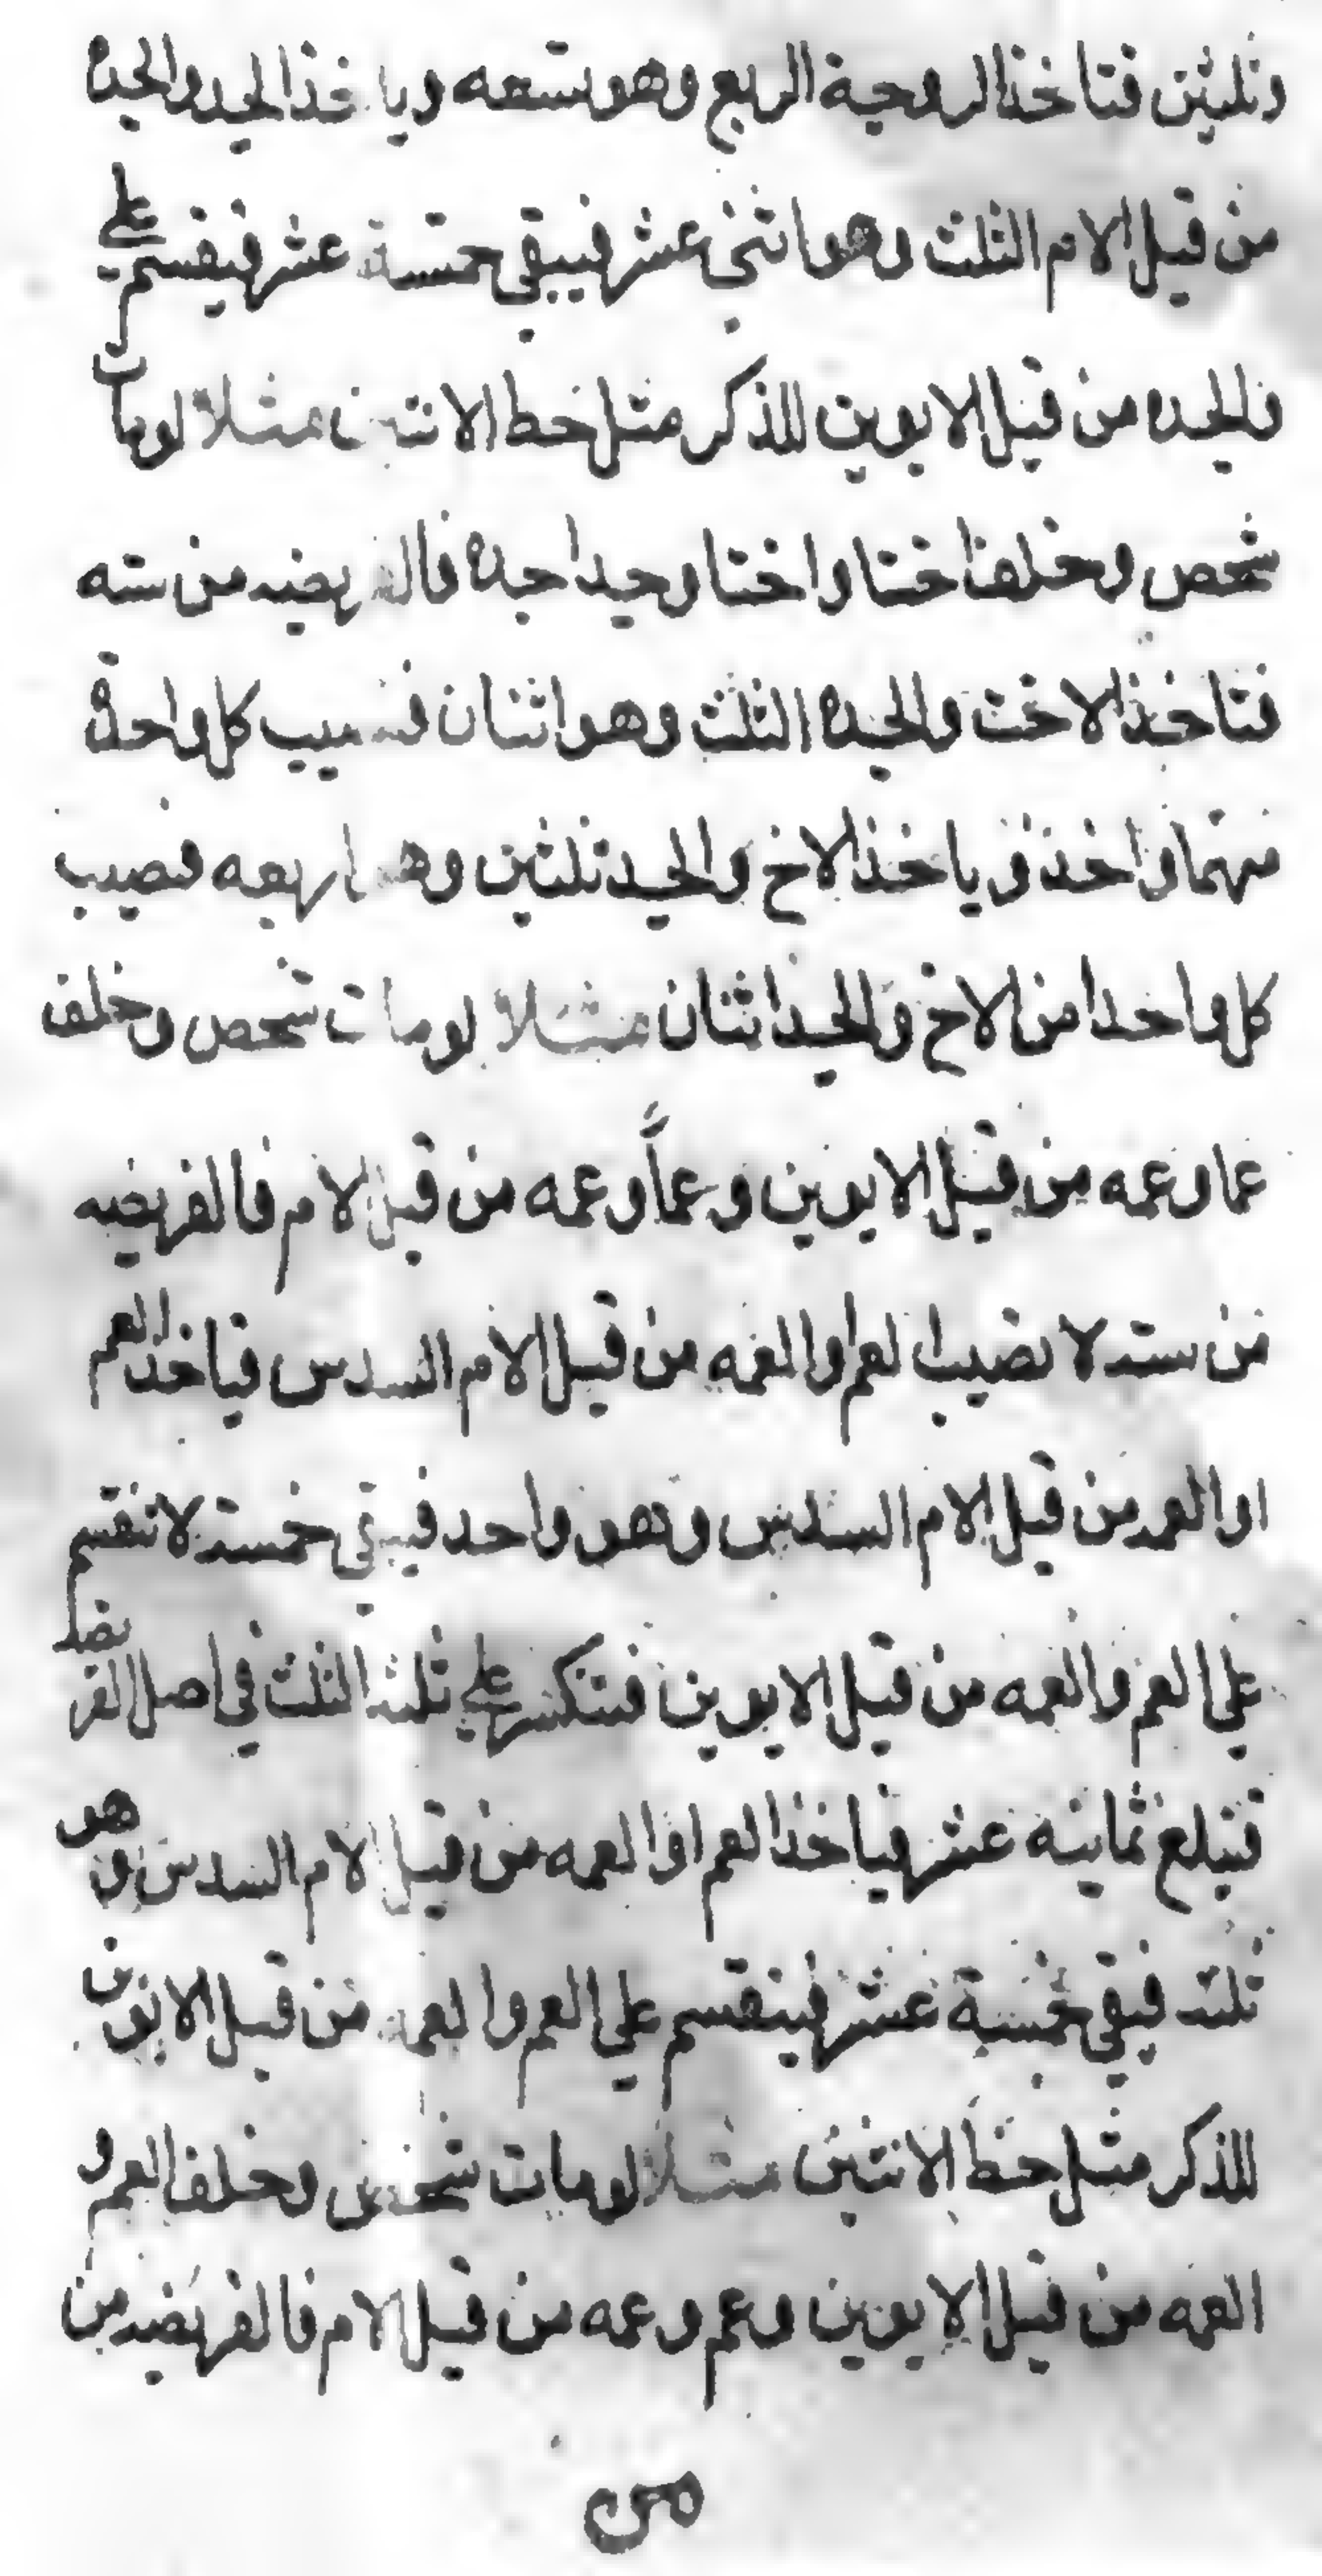 وثلثين فتاخذ الزوجية الربع وهو تسعه وياخذ الجد والجده
من قبل الام الثلث وهو اثني عشر فيبقي خمسة عشر فيقسم علي
والجده من قبل الابوين للذكر مثل حظ الانثيين مثلا لومات
شخص وخلف اختا واختا وجدا جده فالفريضه من سته
فتاخذ الاخت والجده الثلث وهو اثنان فنصيب كل واحدة
منهما واحذ وياخذ الاخ والجد ثلثين وهو اربعه فنصيب
كل واحدا من الاخ والجد اثنان مثلا لومات شخص وخلف
عما وعمه من قبل الابوين وعماً وعمه من قبل الام فالفريضه
من سته لا نصيب لعم اوالعمه من قبل الام السدس فياخذ العم
اوالعمه من قبل الام السدس وهو واحد فيبقي خمسة لاتنقسم
علي العم والعمه من قبل الابوين فتنكسر علي ثلثه الثلث في اصل الفريضه
فتبلغ ثمانيه عشر فياخذ العم اوالعمه من قبل الام السدس وهو
ثلثه فيبقي خمسة عشر فينقسم علي العم والعمه من قبل الابوين
للذكر مثل حظ الانثيين مثلا لومات شخص وخلف العم و
العمه من قبل الابوين وعم وعمه من قبل الام فالفريضه من
من